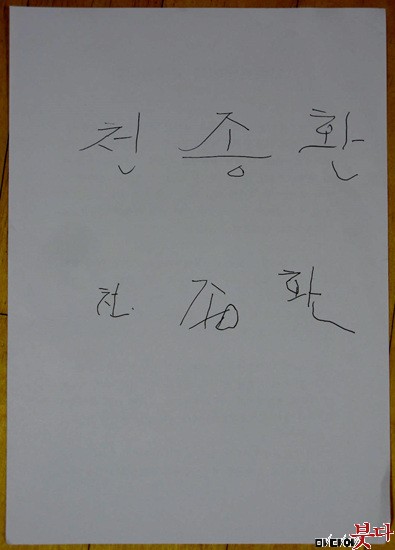 천 종 환
천 종 환
미디어붓다